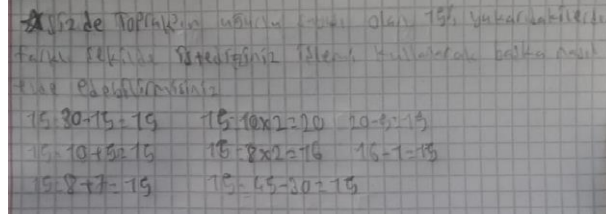 sizde Toprak'ın uğurlu sayısı olan 15'i yukarıdakilerden
farklı şekilde istediğiniz işlemi kullanarak başka nasıl
elde edebilirsiniz
15=30-15=15 15=10x2=20 20-5=15
15=10+5=15 15=8x2=16 16-1=15
15=8+7=15 15=45-30=15